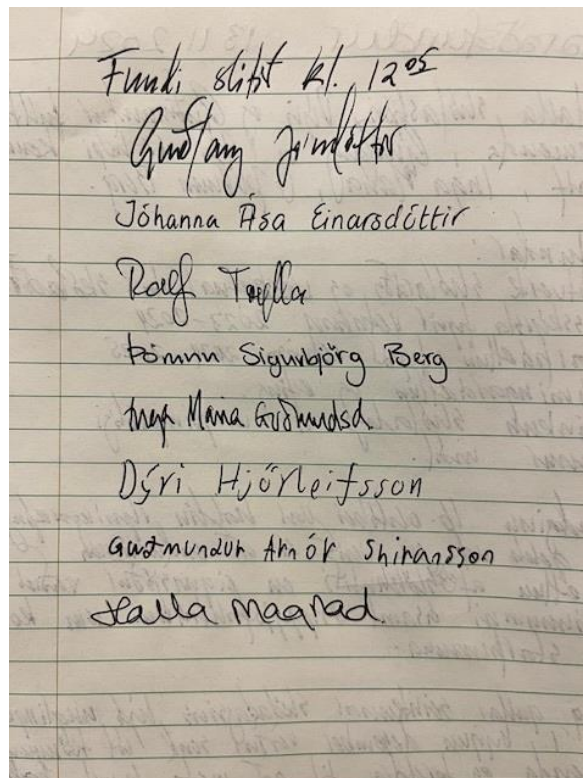 Fundi slitið kl. 12⁰⁵
Guðlaug Jónsdóttir
Jóhanna Ása Einarsdóttir
Ralf Trylla
Þórunn Sigurbjörg Berg
Inga María Guðmundsd.
Dýri Hjörleifsson
Guðmundur Arnór
Halla Magnad.